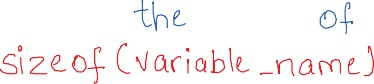 the of
sizeof(variable_name)